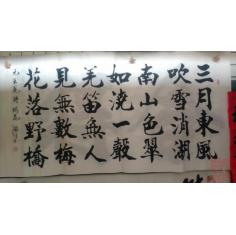 三月東風
吹雪消湖
南山色翠
如澆一聲
羌笛無人
見無數梅
花落野橋